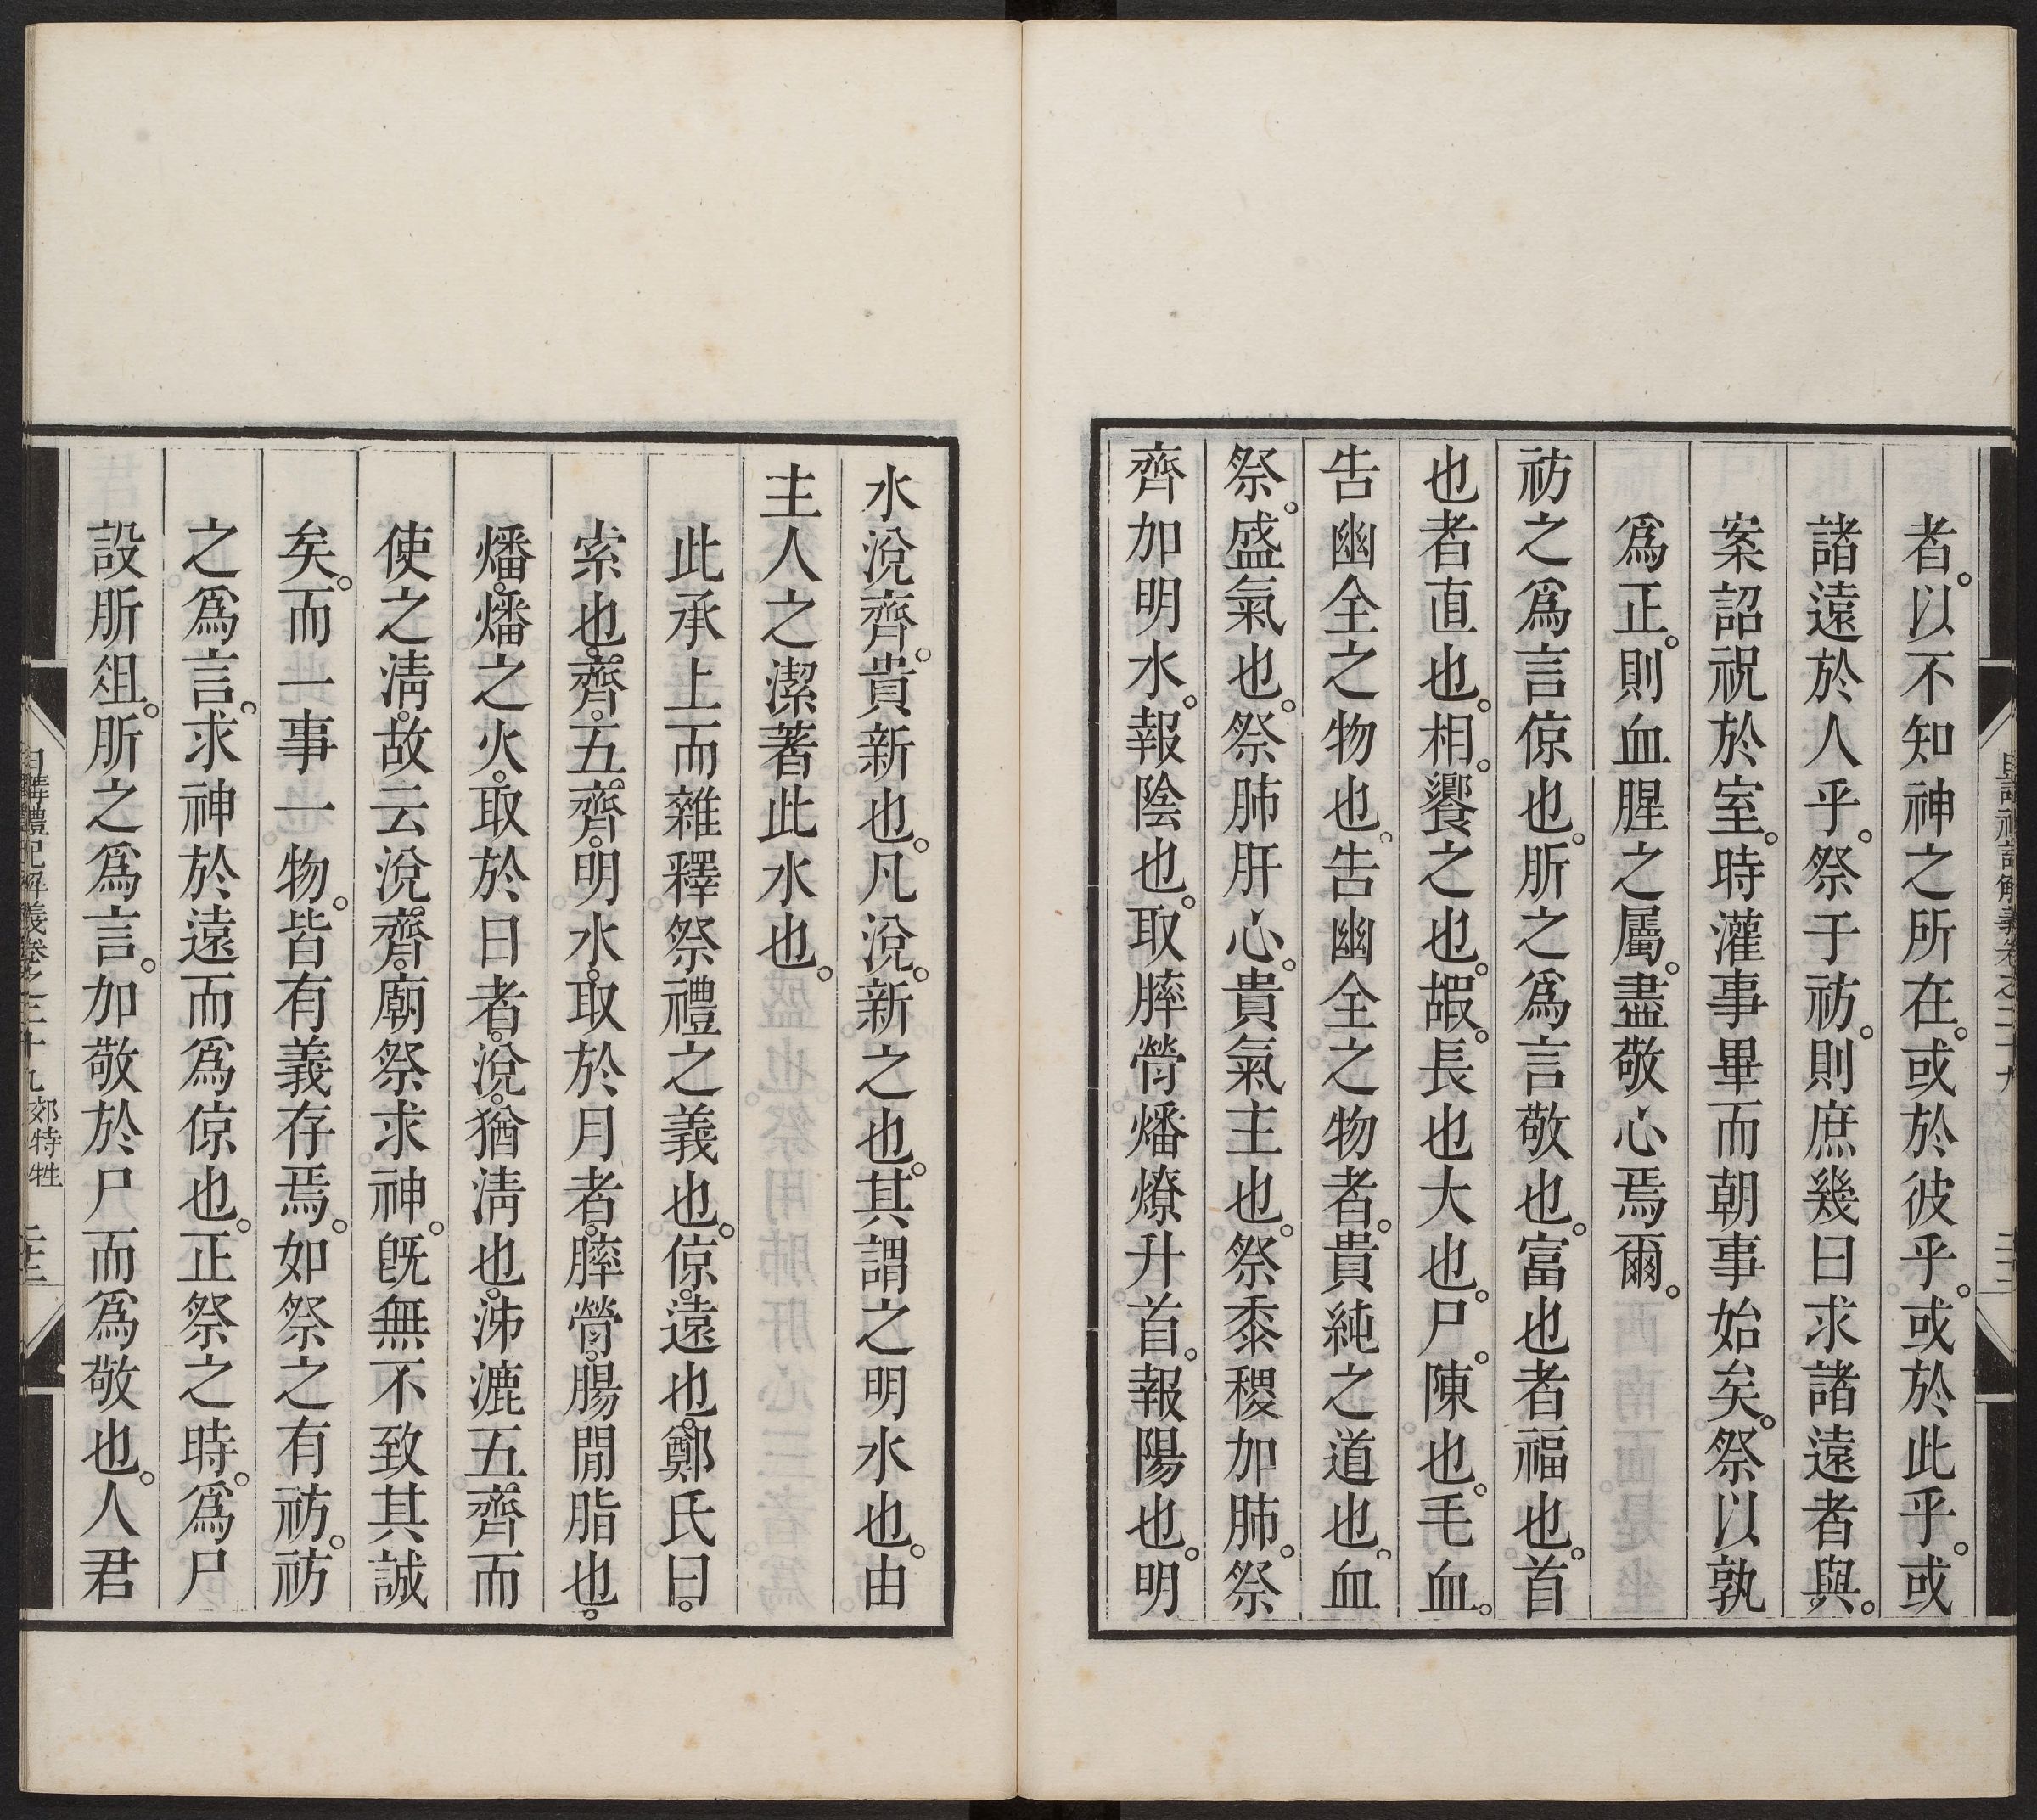 者。以不知神之所在。或於彼乎。或於此乎。或
諸遠於人乎。祭于祊。則庶幾曰求諸遠者與。
案詔祝於室。時灌事畢而朝事始矣。祭以孰
爲正。則血腥之屬。盡敬心焉爾。
祊之爲言倞也。肵之爲言敬也。富也者福也。首
也者直也。相。饗之也。嘏。長也大也。尸。陳也。毛血。
告幽全之物也。告幽全之物者。貴純之道也。血
祭。盛氣也。祭肺肝心。貴氣主也。祭黍稷加肺。祭
齊加明水。報陰也。取膟膋燔燎升首。報陽也。明
水涗齊。貴新也。凡涗。新之也。其謂之明水也。由
主人之潔著此水也。
此承上而雜釋祭禮之義也。倞。遠也。鄭氏曰。
索也。齊。五齊。明水。取於月者。膟膋。腸閒脂也。
燔。燔之火。取於日者。涗。猶淸也。泲漉五齊而
使之淸。故云涗齊。廟祭求神。旣無不致其誠
矣。而一事一物。皆有義存焉。如祭之有祊。祊
之爲言。求神於遠而爲倞也。正祭之時。爲尸
設肵俎。肵之爲言。加敬於尸而爲敬也。人君
日講禮記解義卷之二十九 郊特牲 二十三